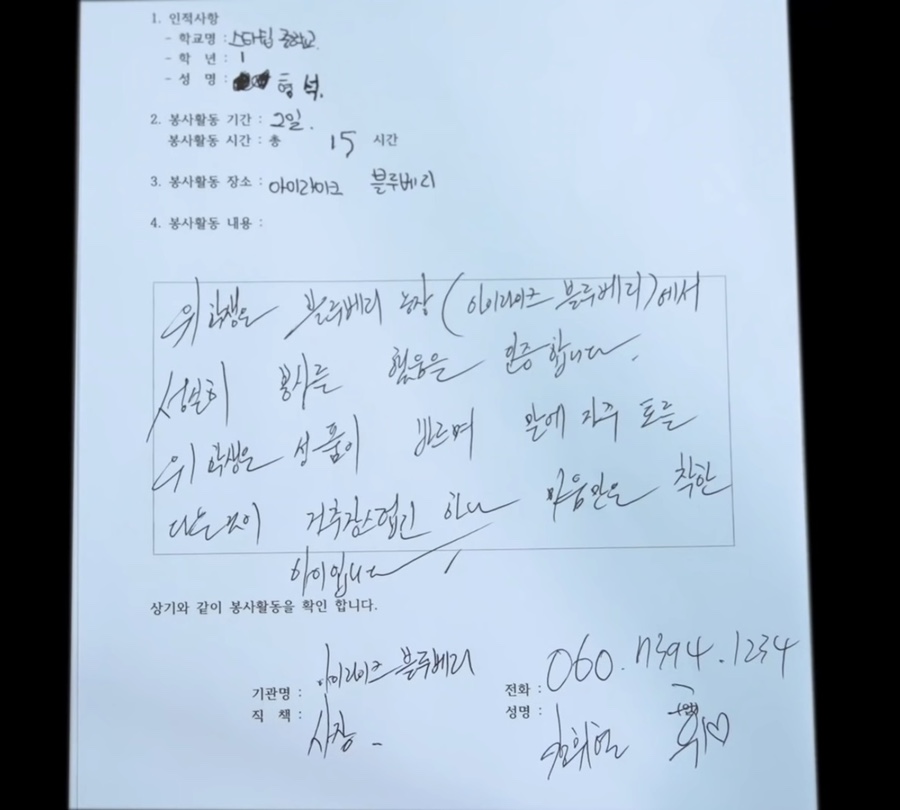 1. 인적사항
- 학교명 : 스타팁 중학교.
- 학 년 : 1
- 성 명 : 형석.
2. 봉사활동 기간 : 2일.
봉사활동 시간 : 총 15 시간
3. 봉사활동 장소 : 아이라이크 블루베리
4. 봉사활동 내용 :
위 학생은 블루베리 농장 (아이라이크 블루베리)에서
성실히 봉사를 했음을 인증합니다.
위 학생은 성품이 바르며 말에 자주 토를
다는 것이 거추장스럽긴 하나 마음만은 착한
아이입니다.
상기와 같이 봉사활동을 확인 합니다.
기관명 : 아이라이크 블루베리
전화 : 060. 7394. 1234
직 책 : 사장
성명 :